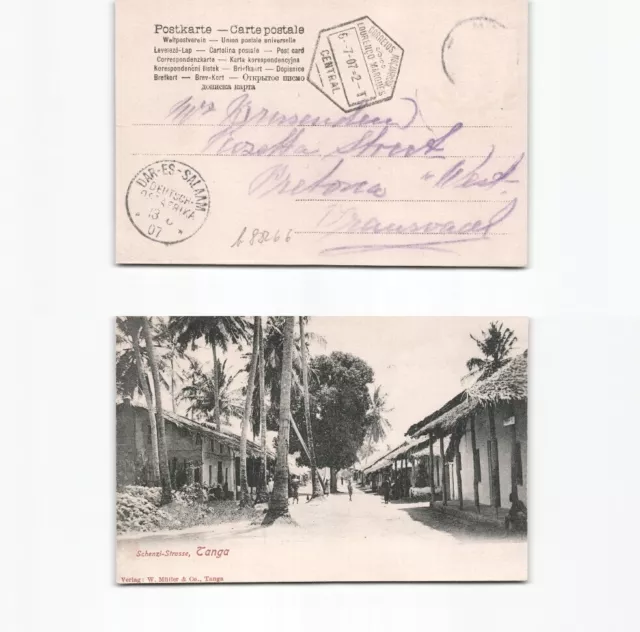 Postkarte — Carte postale
Weltpostverein — Union postale universelle
Levelezö-Lap — Cartolina postale — Post card
Correspondenzkarte — Karta korrespondencyjna
Korespondenční lístek — Briefkaart — Dopisnice
Brefkort — Brev-Kort — Открытое письмо
дописна карта
CORREIOS
LOURENÇO MARQUES
6-7-07 2-T
CENTRAL
Mrs Brissenden
Rozetta Street
Pretoria West
Transvaal
DAR-ES-SALAAM
DEUTSCH-
OSTAFRIKA
13 6
07
A 88266
Schenzi-Strasse, Tanga
Verlag: W. Müller & Co., Tanga